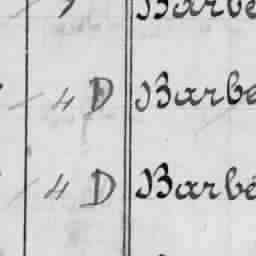 Barbe
4 D Barbe
4 D Barbe